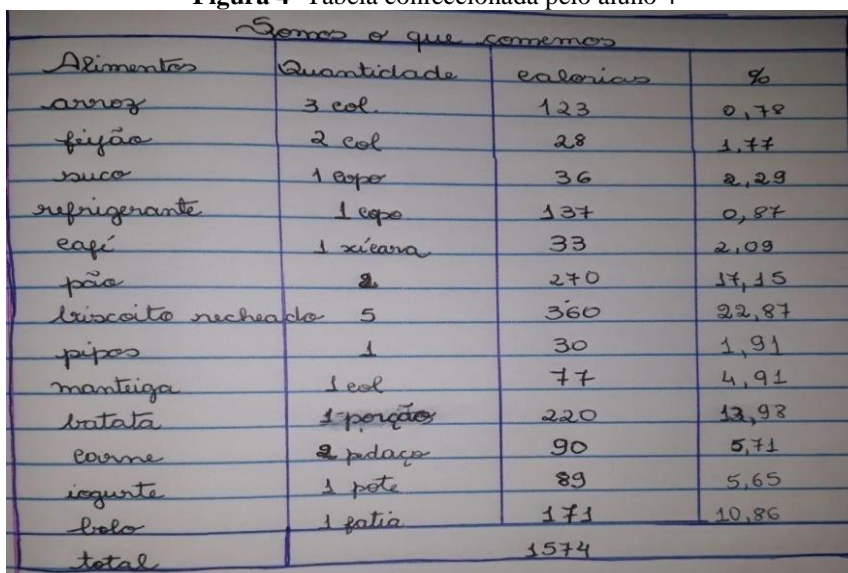 Figura 4- Tabela confeccionada pelo aluno 4
Somos o que comemos
Alimentos Quantidade calorias %
arroz 3 col. 123 0,78
feijão 2 col 28 1,77
suco 1 copo 36 2,29
refrigerante 1 copo 137 0,87
café 1 xícara 33 2,09
pão 2 270 17,15
biscoito recheado 5 360 22,87
pipos 1 30 1,91
manteiga 1 col 77 4,91
batata 1 porção 220 13,98
carne 2 pedaço 90 5,71
iogurte 1 pote 89 5,65
bolo 1 fatia 171 10,86
total 1574